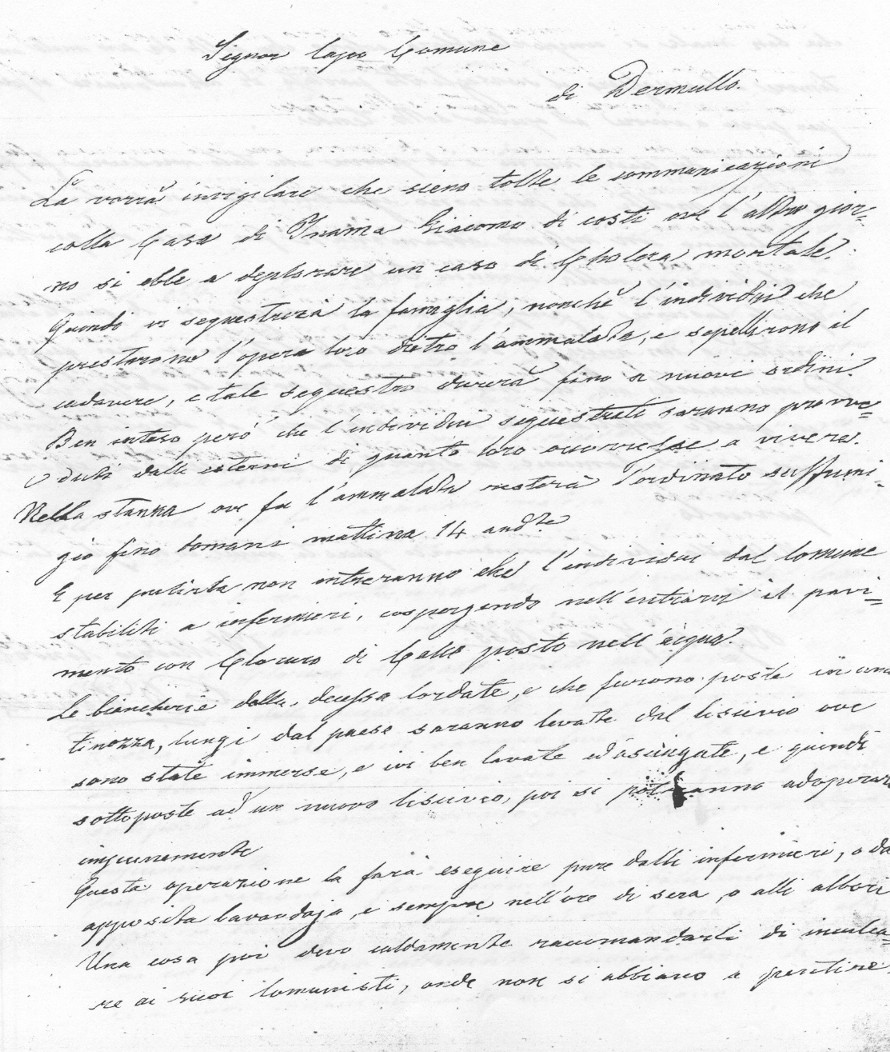 Signor Capo Comune
di Dermullo.
La vorrà invigilare che sieno tolte le communicazioni
colla Casa di Inama Giacomo di costì ove l'altro gior-
no si ebbe a deplorare un caso di Cholera mortale.
Quindi si sequestrerà la famiglia, nonchè l'individui che
prestarono l'opera loro dietro l'ammalata, e sepellirono il
cadavere, e tale sequestro durerà fino a nuovi ordini
Ben inteso però che l'individui sequestrati saranno provve-
duti dalli esterni di quanto loro occorresse a vivere.
Nella stanza ove fu l'ammalata resterà l'ordinato suffumi-
gio fino domani mattina 14 and.te
E per pulirla non entreranno che l'individui dal Comune
stabiliti a infermieri, cospergendo nell'entrarvi il pavi-
mento con Cloruro di Calce posto nell'acqua.
Le biancherie dalla decessa lordate, e che furono poste in una
tinozza, lungi dal paese saranno levate dal liscivio ove
sono state immerse, e ivi ben lavate ed asciugate, e quindi
sottoposte ad un nuovo liscivio, poi si potranno adoperare
impunemente
Questa operazione la farà eseguire pure dalli infermieri, o da
apposita lavandaja, e sempre nell'ore di sera, o alli albori
Una cosa poi devo caldamente raccomandarli di inculca-
re ai suoi Comunisti, onde non si abbiano a pentire